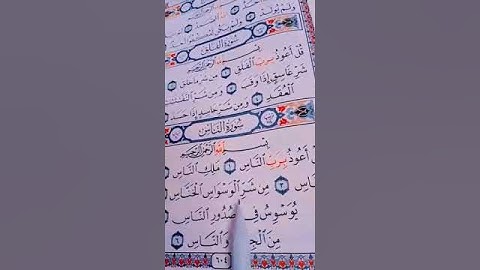 وَلَمْ يُولَدْ
سُورَةُ الفَلَقِ
بِسْمِ ٱللَّهِ ٱلرَّحْمَٰنِ ٱلرَّحِيمِ
قُلْ أَعُوذُ بِرَبِّ ٱلْفَلَقِ ١ مِن شَرِّ مَا خَلَقَ ٢
شَرِّ غَاسِقٍ إِذَا وَقَبَ ٣ وَمِن شَرِّ
ٱلْعُقَدِ ٤ وَمِن شَرِّ حَاسِدٍ إِذَا حَسَدَ
سُورَةُ النَّاسِ
بِسْمِ ٱللَّهِ ٱلرَّحْمَٰنِ ٱلرَّحِيمِ
أَعُوذُ بِرَبِّ ٱلنَّاسِ ١ مَلِكِ ٱلنَّاسِ
٣ مِن شَرِّ ٱلْوَسْوَاسِ ٱلْخَنَّاسِ
يُوَسْوِسُ فِي صُدُورِ ٱلنَّاسِ
مِنَ وَٱلنَّاسِ ٦
٦٠٤